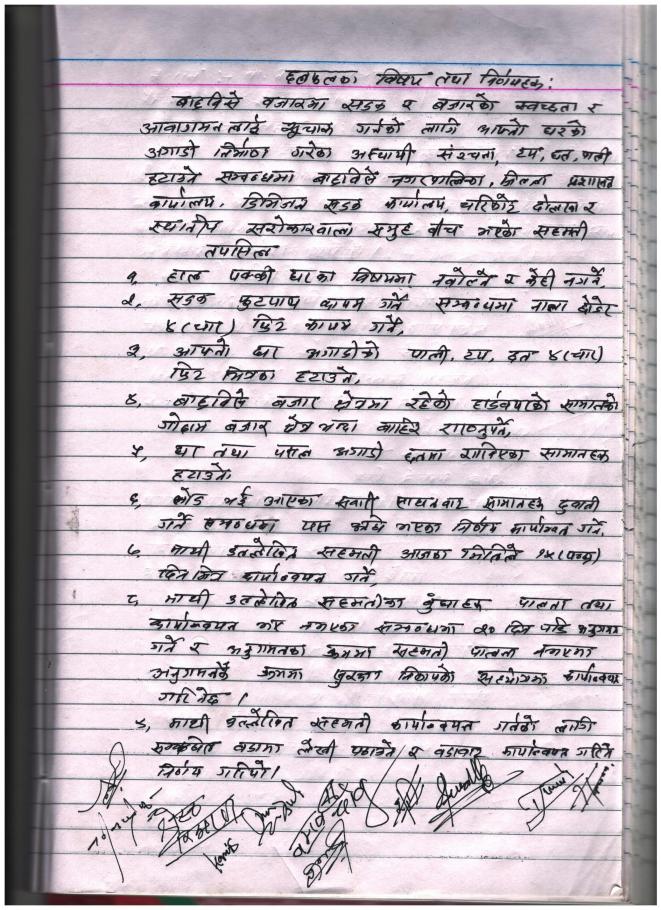 छलफलका विषय तथा निर्णयहरू:
बाह्रविसे बजारमा सडक र बजारको स्वच्छता र
आवागमनलाई सुचारू गर्नको लागि आफ्नो घरको
अगाडी निर्माण गरेका अस्थायी संरचना, टप, छत, पाली
हटाउने सम्बन्धमा बाह्रविसे नगरपालिका, जिल्ला प्रशासन
कार्यालय, डिभिजन सडक कार्यालय, चरिकोट दोलखा र
स्थानीय सरोकारवाला समुह बीच भएको सहमती
तपसिल
१, हाल पक्की घरका विषयमा नबोल्ने र केही नगर्ने,
२, सडक फुटपाथ कायम गर्ने सम्बन्धमा नाला छोडेर
४(चार) फिट कायम गर्ने,
३, आफ्नो घर अगाडीको पाली, टप, छत ४(चार)
फिट भित्रका हटाउने,
४, बाह्रविसे बजार क्षेत्रमा रहेको हार्डवयरको सामानको
गोदाम बजार क्षेत्र भन्दा बाहिर राख्नुपर्ने,
५, घर तथा पसल अगाडी राखिएका सामानहरू
हटाउने,
६, लोड भई आएका सवारी साधनबाट सामानहरू ढुवानी
गर्ने सम्बन्धमा यस अघि भएका निर्णय कार्यान्वयन गर्ने,
७, माथी उल्लेखित सहमती आजका मितिले १५(पन्ध्र)
दिन भित्र कार्यान्वयन गर्ने,
८, माथी उल्लेखित सहमतीका बुंदाहरू पालना तथा
कार्यान्वयन भए नभएका सम्बन्धमा २० दिन पछि अनुगमन
गर्ने र अनुगमनका क्रममा सहमती पालना नभएमा
अनुगमनकै क्रममा सुरक्षा निकायको सहयोगमा कार्यान्वयन
गरिनेछ ।
९, माथी उल्लेखित सहमती कार्यान्वयन गर्नको लागि
सम्बन्धित वडामा लेखी पठाउने र वडाबाट कार्यान्वयन गरिने
निर्णय गरियो ।